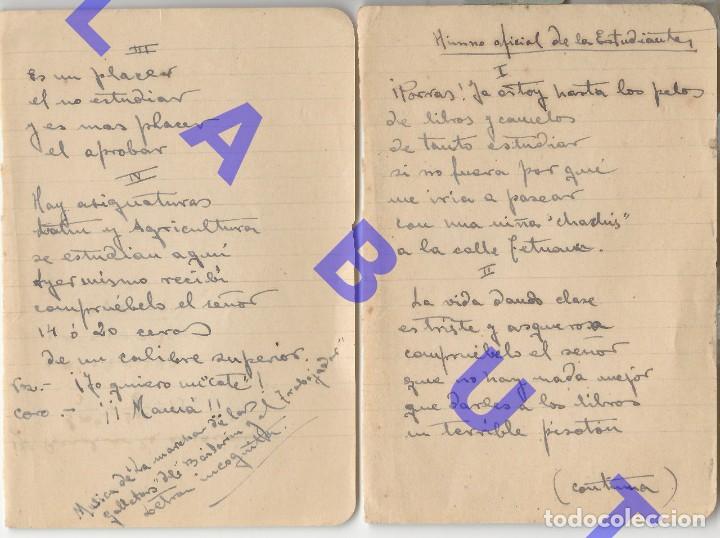 III
Es un placer
el no estudiar
y es mas placer
el aprobar
IV
Hay asignaturas
latin y Agricultura
se estudian aquí
Ayer mismo recibí
compruébelo el señor
14 ó 20 ceros
de un calibre superior
Voz.- ¡Yo quiero mi "café"!
coro.- ¡¡Mamá!!
Música de "La marcha de los
de y al trabajador"
Letra: incognita.
Himno oficial de la Estudiantes
I
¡Porras! Ya estoy hasta los pelos
de libros y camelos
de tanto estudiar
si no fuera por qué
me iria a pasear
con una niña "chachis"
a la calle Tetuan.
II
La vida dando clase
es triste y asquerosa
compruébelo el señor
que no hay nada mejor
que darles a los libros
un terrible pisotón
(continua)
L A B U T
todocoleccion
todocoleccion.net